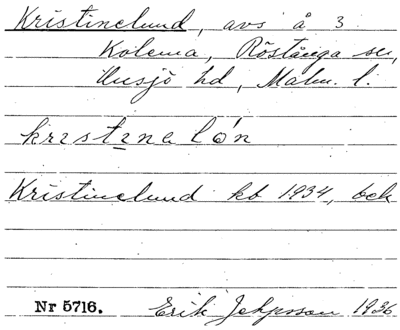 Kristinelund, avs å 3
Kolema, Röstånga sn,
Onsjö hd, Malm. l.
kristinelón
Kristinelund kb 1934, bek
Nr 5716. Erik Jeppsson 1936